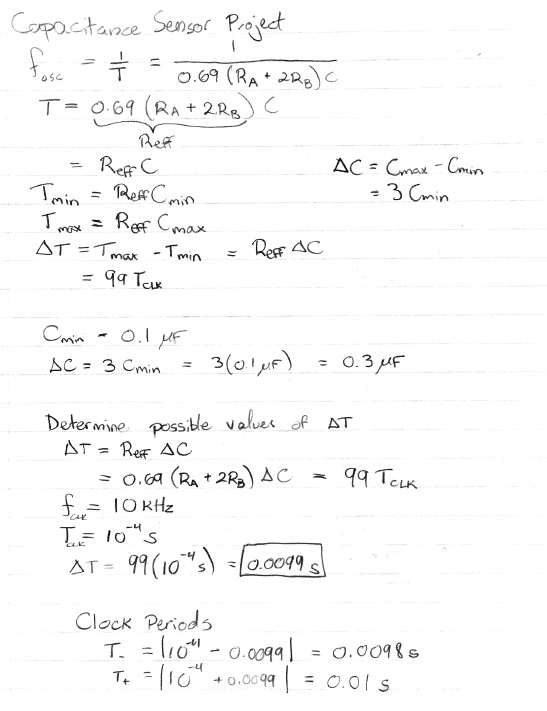 Capacitance Sensor Project
f_osc = 1/T = 1/(0.69 (R_A + 2R_B) C)
T = 0.69 (R_A + 2R_B) C
Reff
= Reff C
ΔC = Cmax - Cmin
= 3 Cmin
Tmin = Reff Cmin
Tmax = Reff Cmax
ΔT = Tmax - Tmin = Reff ΔC
= 99 T_CLK
Cmin = 0.1 μF
ΔC = 3 Cmin = 3(0.1 μF) = 0.3 μF
Determine possible values of ΔT
ΔT = Reff ΔC
= 0.69 (R_A + 2R_B) ΔC = 99 T_CLK
f_CLK = 10 KHz
T_CLK = 10⁻⁴ s
ΔT = 99(10⁻⁴ s) = 0.0099 s
Clock Periods
T₋ = |10⁻⁴ - 0.0099| = 0.0098 s
T₊ = |10⁻⁴ + 0.0099| = 0.01 s